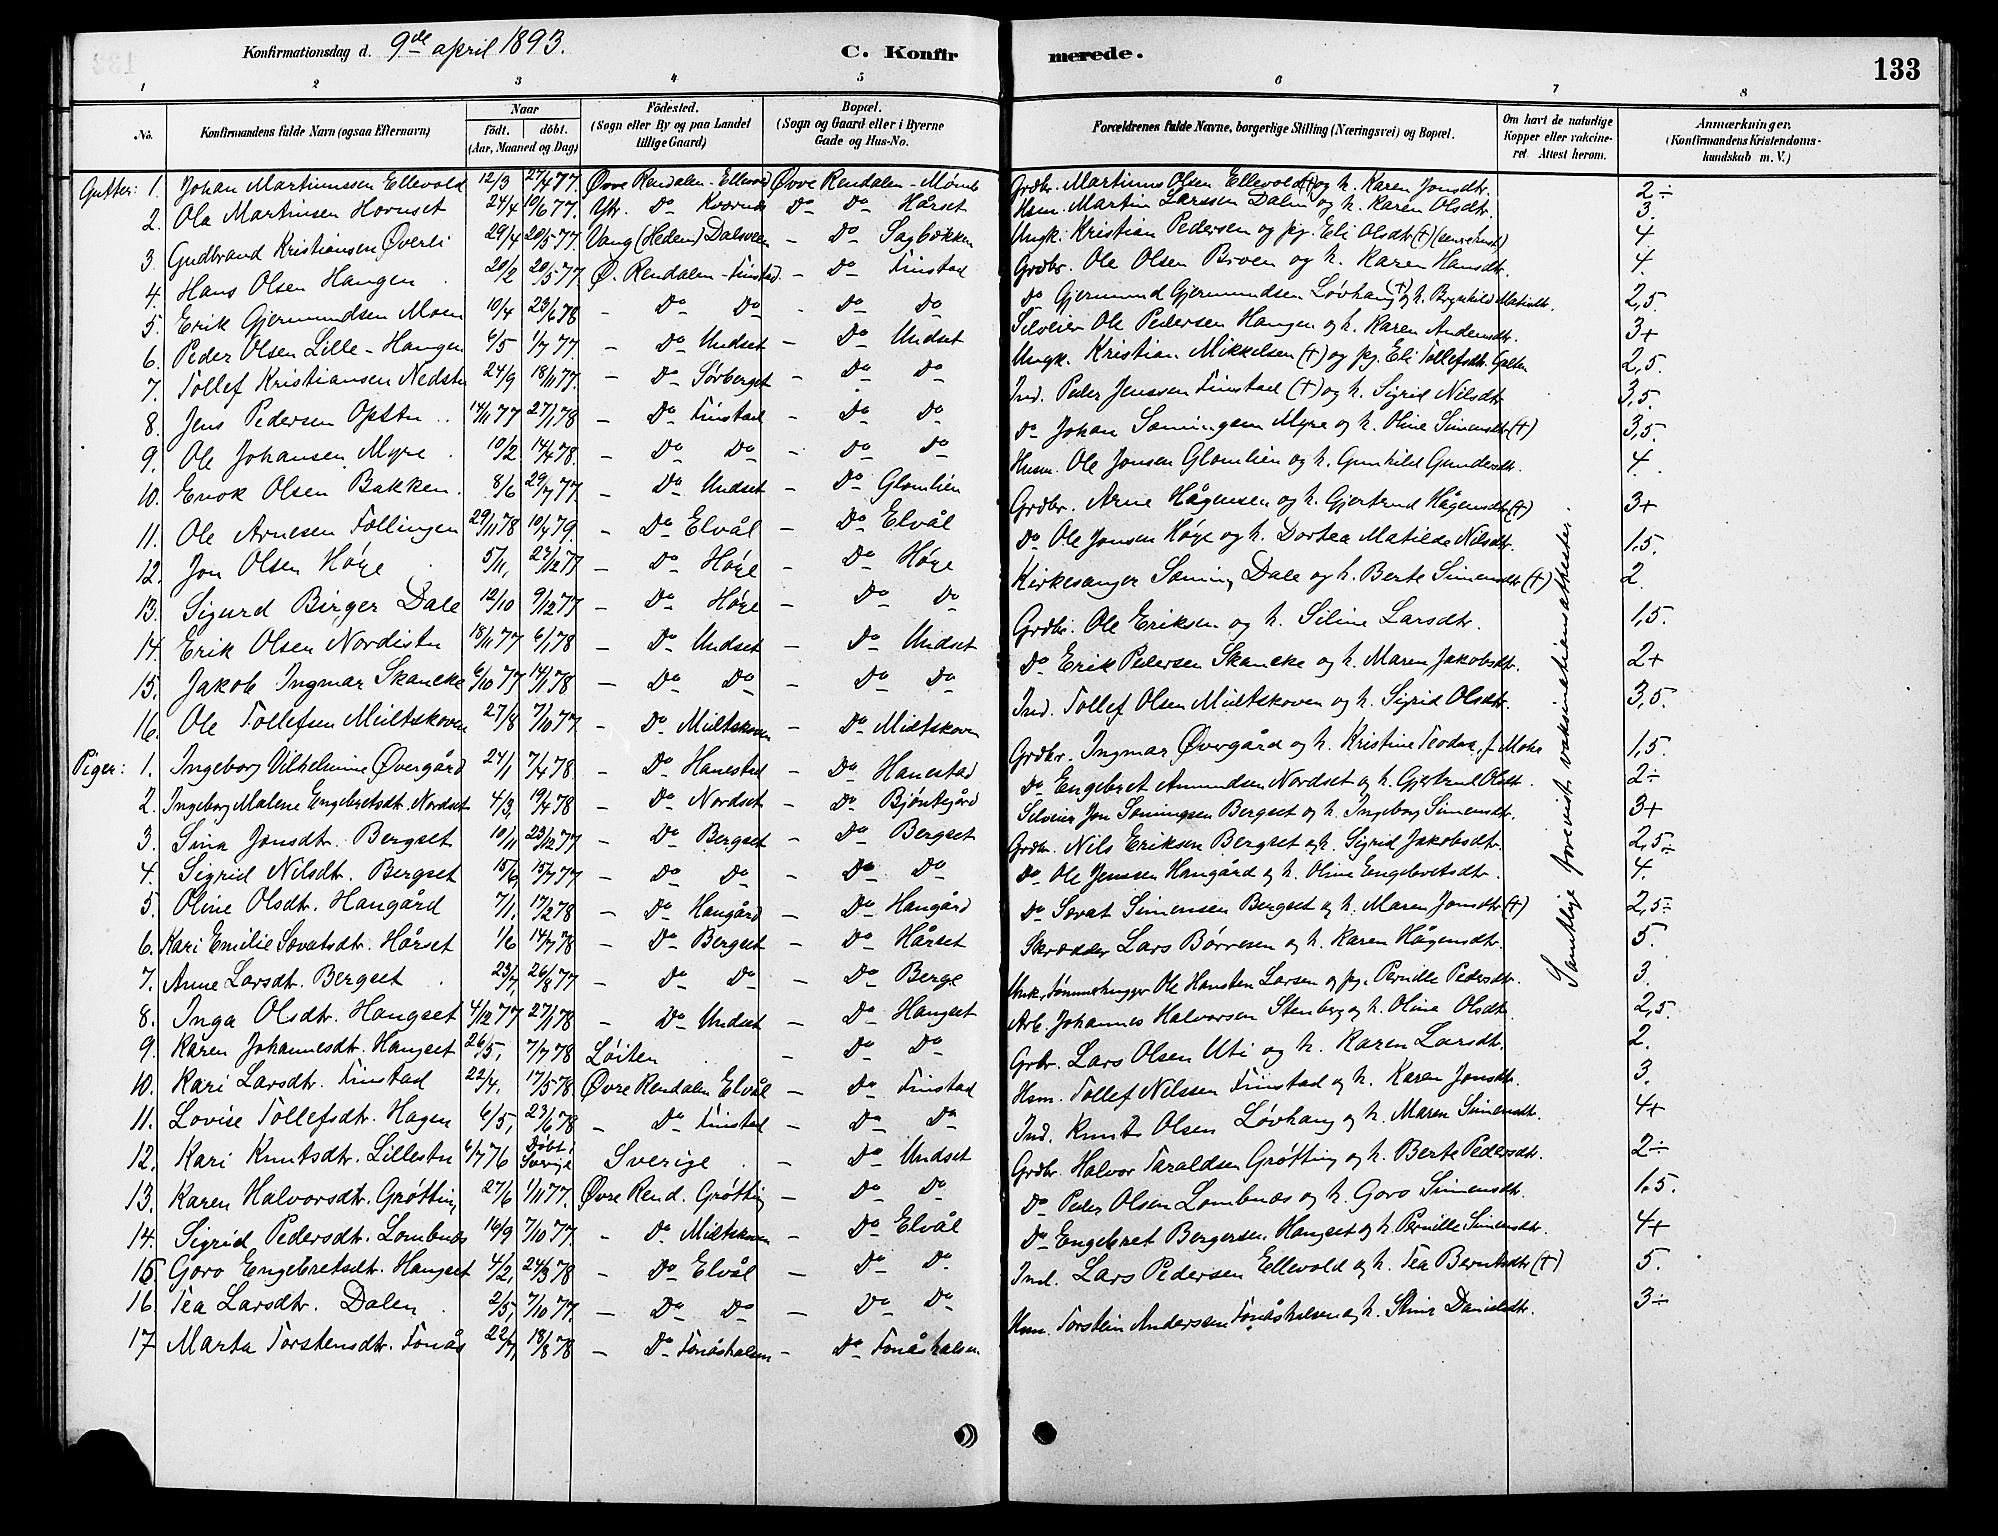 Konfirmationsdag d. 9de april 1893.
C. Konfir
merede.
133
1 2 3 4 5 6 7 8
No. Konfirmandens fulde Navn (ogsaa Efternavn) Naar födt. döbt. (Aar, Maaned og Dag) Födested. (Sogn eller By og paa Landet tillige Gaard) Bopæl. (Sogn og Gaard eller i Byerne Gade og Hus-No. Forældrenes fulde Navne, borgerlige Stilling (Næringsvei) og Bopæl. Om havt de naturlige Kopper eller vakcineret. Attest herom. Anmærkninger. (Konfirmandens Kristendomskundskab m. V.)
Gutter: 1. Johan Martinussen Ellevold 12/3 27/4 77. Øvre Rendalen - Ellevold Øvre Rendalen - Grdbr. Martinus Olsen Ellevold (+) og h. Karen Jonsdtr. 2÷
2. Ola Martinsen Hornset 24/4 10/6 77. Ytr. Do Do Do Hårset Hsm. Martin Larssen Dalen og h. Karen Olsdtr. 3.
3. Gudbrand Kristiansen Øverli 29/4 20/5 77. Vang (Hedem) Dalsveen - Do Sagbækken Ungk. Kristian Pedersen og pg. Eli Olsdtr (+) 4
4. Hans Olsen Hangen 20/2 20/5 77 Ø. Rendalen - Finstad - Do Finstad Grdbr. Ole Olsen Broen og h. Karen Hansdtr. 4.
5. Erik Gjermundsen Moen 10/4 23/6 78 - Do Do - Do Do Do Gjermund Gjermundsen Løvhang (+) og h. Brynhild Matisdtr. 2,5.
6. Peder Olsen Lille-Hangen 6/5 1/7 77 - Do Undset - Do Undset Selveier Ole Pedersen Hangen og h. Karen Andersdtr. 3+
7. Tollef Kristiansen Nedstu 24/9 18/11 77. - Do Sørberget - Do Do Ungk. Kristian Mikkelsen (+) og pg. Eli Tollefsdtr. 2,5.
8. Jens Pedersen Opstu 14/11 77 27/1 78 - Do Finstad - Do Do Ind. Peder Jenssen Finstad (+) og h. Sigrid Nilsdtr. 3,5.
9. Ole Johansen Myre 10/2 14/4 78. - Do Do - Do Do Do Johan Sømingsen Myre og h. Oline Simensdtr (+) 3,5.
10. Enok Olsen Bakken. 8/6 29/7 77. - Do Undset - Do Glomlien Husm. Ole Jonsen Glomlien og h. Gunhild Gundersdtr. 4.
11. Ole Arnesen Follingen 29/11 78 10/4 79. - Do Elvål - Do Elvål Grdbr. Arne Hågensen og h. Gjertrud Hågensdtr (+) 3+
12. Jon Olsen Høye 5/11, 27/12 77 - Do Høye - Do Høye Do Ole Jonsen Høye og h. Dortea Matilde Nilsdtr. 1,5.
13. Sigurd Birger Dale 12/10 9/12 77 - Do Høye - Do Do Kirkesanger Søming Dale og h. Berte Simensdtr (+) 2.
14. Erik Olsen Nordistu 18/11 77 6/1 78 - Do Undset Do Undset Grdbr. Ole Eriksen og h. Siline Larsdtr. 1,5.
15. Jakob Ingmar Skancke 6/10 77 14/1 78 - Do Do - Do Do Do Erik Pedersen Skancke og h. Maren Jakobsdtr. 2+
16. Ole Tollefsen Midtskoven 27/8 7/10 77 - Do Midtskoven Do Midtskoven Ind. Tollef Olsen Midtskoven og h. Sigrid Olsdtr. 3,5.
Piger: 1. Ingeborg Vilhelmine Øvergård 24/1 7/4 78. - Do Hanestad - Do Hanestad Grdbr. Ingmar Øvergård og h. Kristine Teodora, f. Mohr 1,5.
2. Ingeborg Malene Engebretsdtr. Nordset 4/3, 19/4 78 - Do Nordset - Do Bjøntegård Do Engebret Amundsen Nordset og h. Gjertrud Olsdtr. 2÷
3. Sina Jonsdtr. Bergset 10/11 23/12 77 - Do Bergset - Do Bergset Selveier Jon Sømingsen Bergset og h. Ingeborg Simensdtr. 3+
4. Sigrid Nilsdtr. Bergset 15/6, 15/7 77 - Do Do - Do Do Grdbr. Nils Eriksen Bergset og h. Sigrid Jakobsdtr. 2,5÷
5. Oline Olsdtr. Hangård 7/1. 17/2 78 - Do Hangård - Do Hangård Do Ole Jenssen Hangård og h. Oline Engebretsdtr. 4.
6. Kari Emilie Sovatsdtr. Hårset 1/6 14/7 78 - Do Bergset - Do Hårset Do Sovat Simensen Bergset og h. Maren Jonsdtr (+) 2,5÷
7. Anne Larsdtr. Bergset 23/7, 26/8 77 - Do Do - Do Berge Skrædder Lars Børresen og h. Karen Hågensdtr. 5.
8. Inga Olsdtr. Hangset 4/12 77 27/1 78 - Do Undset - Do Hangset Ungk. Tømmerhugger Ole Hansten Larsen og pg. Pernille Pedersdtr. 3.
9. Karen Johannesdtr. Hangset 26/5, 7/7 78 Løiten - Do Do Arb. Johannes Halvorsen Stenberg og h. Oline Olsdtr. 2,5.
10. Kari Larsdtr. Finstad 22/4, 17/5 78. Øvre Rendalen Elvål - Do Finstad Grbr. Lars Olsen Uti og h. Karen Larsdtr. 2.
11. Lovise Tollefsdtr. Hagen 6/5, 23/6 78 - Do Finstad - Do Do Hsm. Tollef Nilssen Finstad og h. Karen Jonsdtr. 3.
12. Kari Knutsdtr. Lillestu 6/7 76 Døbt i Sverige Sverige - Do Undset Ind. Knut Olsen Løvhang og h. Maren Simensdtr. 4+
13. Karen Halvorsdtr. Grøtting 27/6 1/11 77. Øvre Rend. Grøtting - Do Do Grdbr. Halvor Taraldsen Grøtting og h. Berte Pedersdtr. 2÷
14. Sigrid Pedersdtr. Lombnæs 16/9 7/10 77. - Do Midtskoven - Do Elvål Do Peder Olsen Lombnæs og h. Goro Simensdtr. 1,5.
15 Goro Engebretsdtr. Hangset 4/2, 24/3 78 - Do Elvål - Do Do Do Engebret Bergersen Hangset og h. Pernille Simensdtr. 4+
16. Tea Larsdtr. Dalen 2/5, 7/10 77. - Do Do - Do Do Ind. Lars Pedersen Ellevold og h. Tea Berntsdtr (+) 5.
17 Marta Torstensdtr. Fonås 22/7, 18/8 78 - Do Fonåshalsen - Do Fonåshalsen Hsm. Torstein Anderssen Fonåshalsen og h. Stine Danielsdtr. 3÷
Samtlige forevist vaksinationsattester.